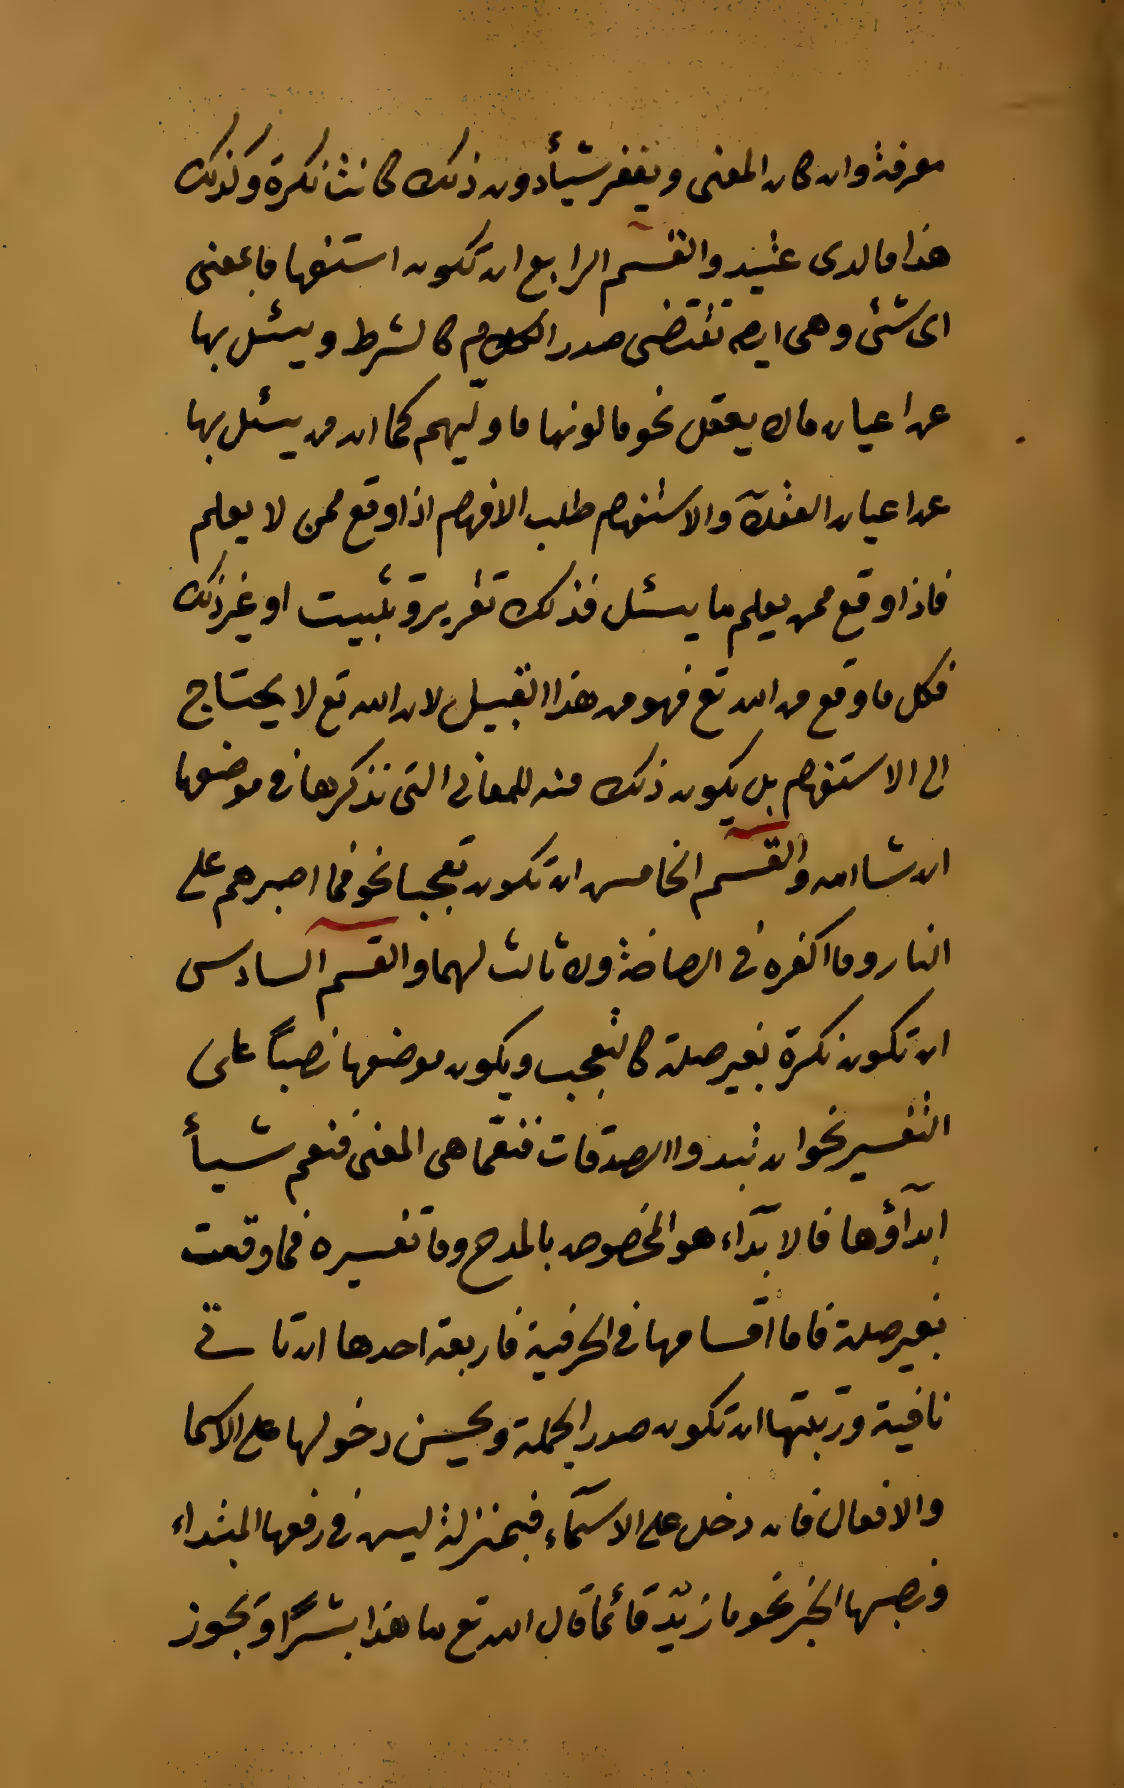 معرفة وان كان المعنى ويغفر شيأ دون ذلك كانت نكرة وكذلك
هذا ما لدى عتيد والقسم الرابع ان تكون استفهاما بمعنى
اى شئ وهى ايضا تقتضى صدر الكلام كالشرط ويسئل بها
عن اعيان ما لا يعقل نحو ما لونها ما وليهم كما ان من يسئل بها
عن اعيان العقلآ والاستفهام طلب الافهام اذا وقع ممن لا يعلم
فاذا وقع ممن يعلم ما يسئل فذلك تقرير وتثبيت او غير ذلك
فكل ما وقع من الله تع فهو من هذا القبيل لان الله تع لا يحتاج
الى الاستفهام بل يكون ذلك منه للمعانى التى نذكرها فى موضعها
ان شا الله والقسم الخامس ان تكون تعجبا نحو فما اصبرهم على
النار وما اكفره فى ولا ثالث لهما والقسم السادس
ان تكون نكرة بغير صلة كالتعجب ويكون موضعها نصباً على
التفسير نحو ان تبدوا الصدقات فنعما هى المعنى فنعم شيأ
ابدآؤها فالابدآء هو المخصوص بالمدح وما تفسيره فما وقعت
بغير صلة فاما اقسامها فى الحرفية فاربعة احدها ان تاتى
نافية ورتبتها ان تكون صدر الجملة ويحسن دخولها على الاسما
والافعال فان دخل على الاسمآء فبمنزلة ليس فى رفعها المبتداء
ونصبها الخبر نحو ما زيدٌ قائما قال الله تع ما هذا بشرًا ويجوز